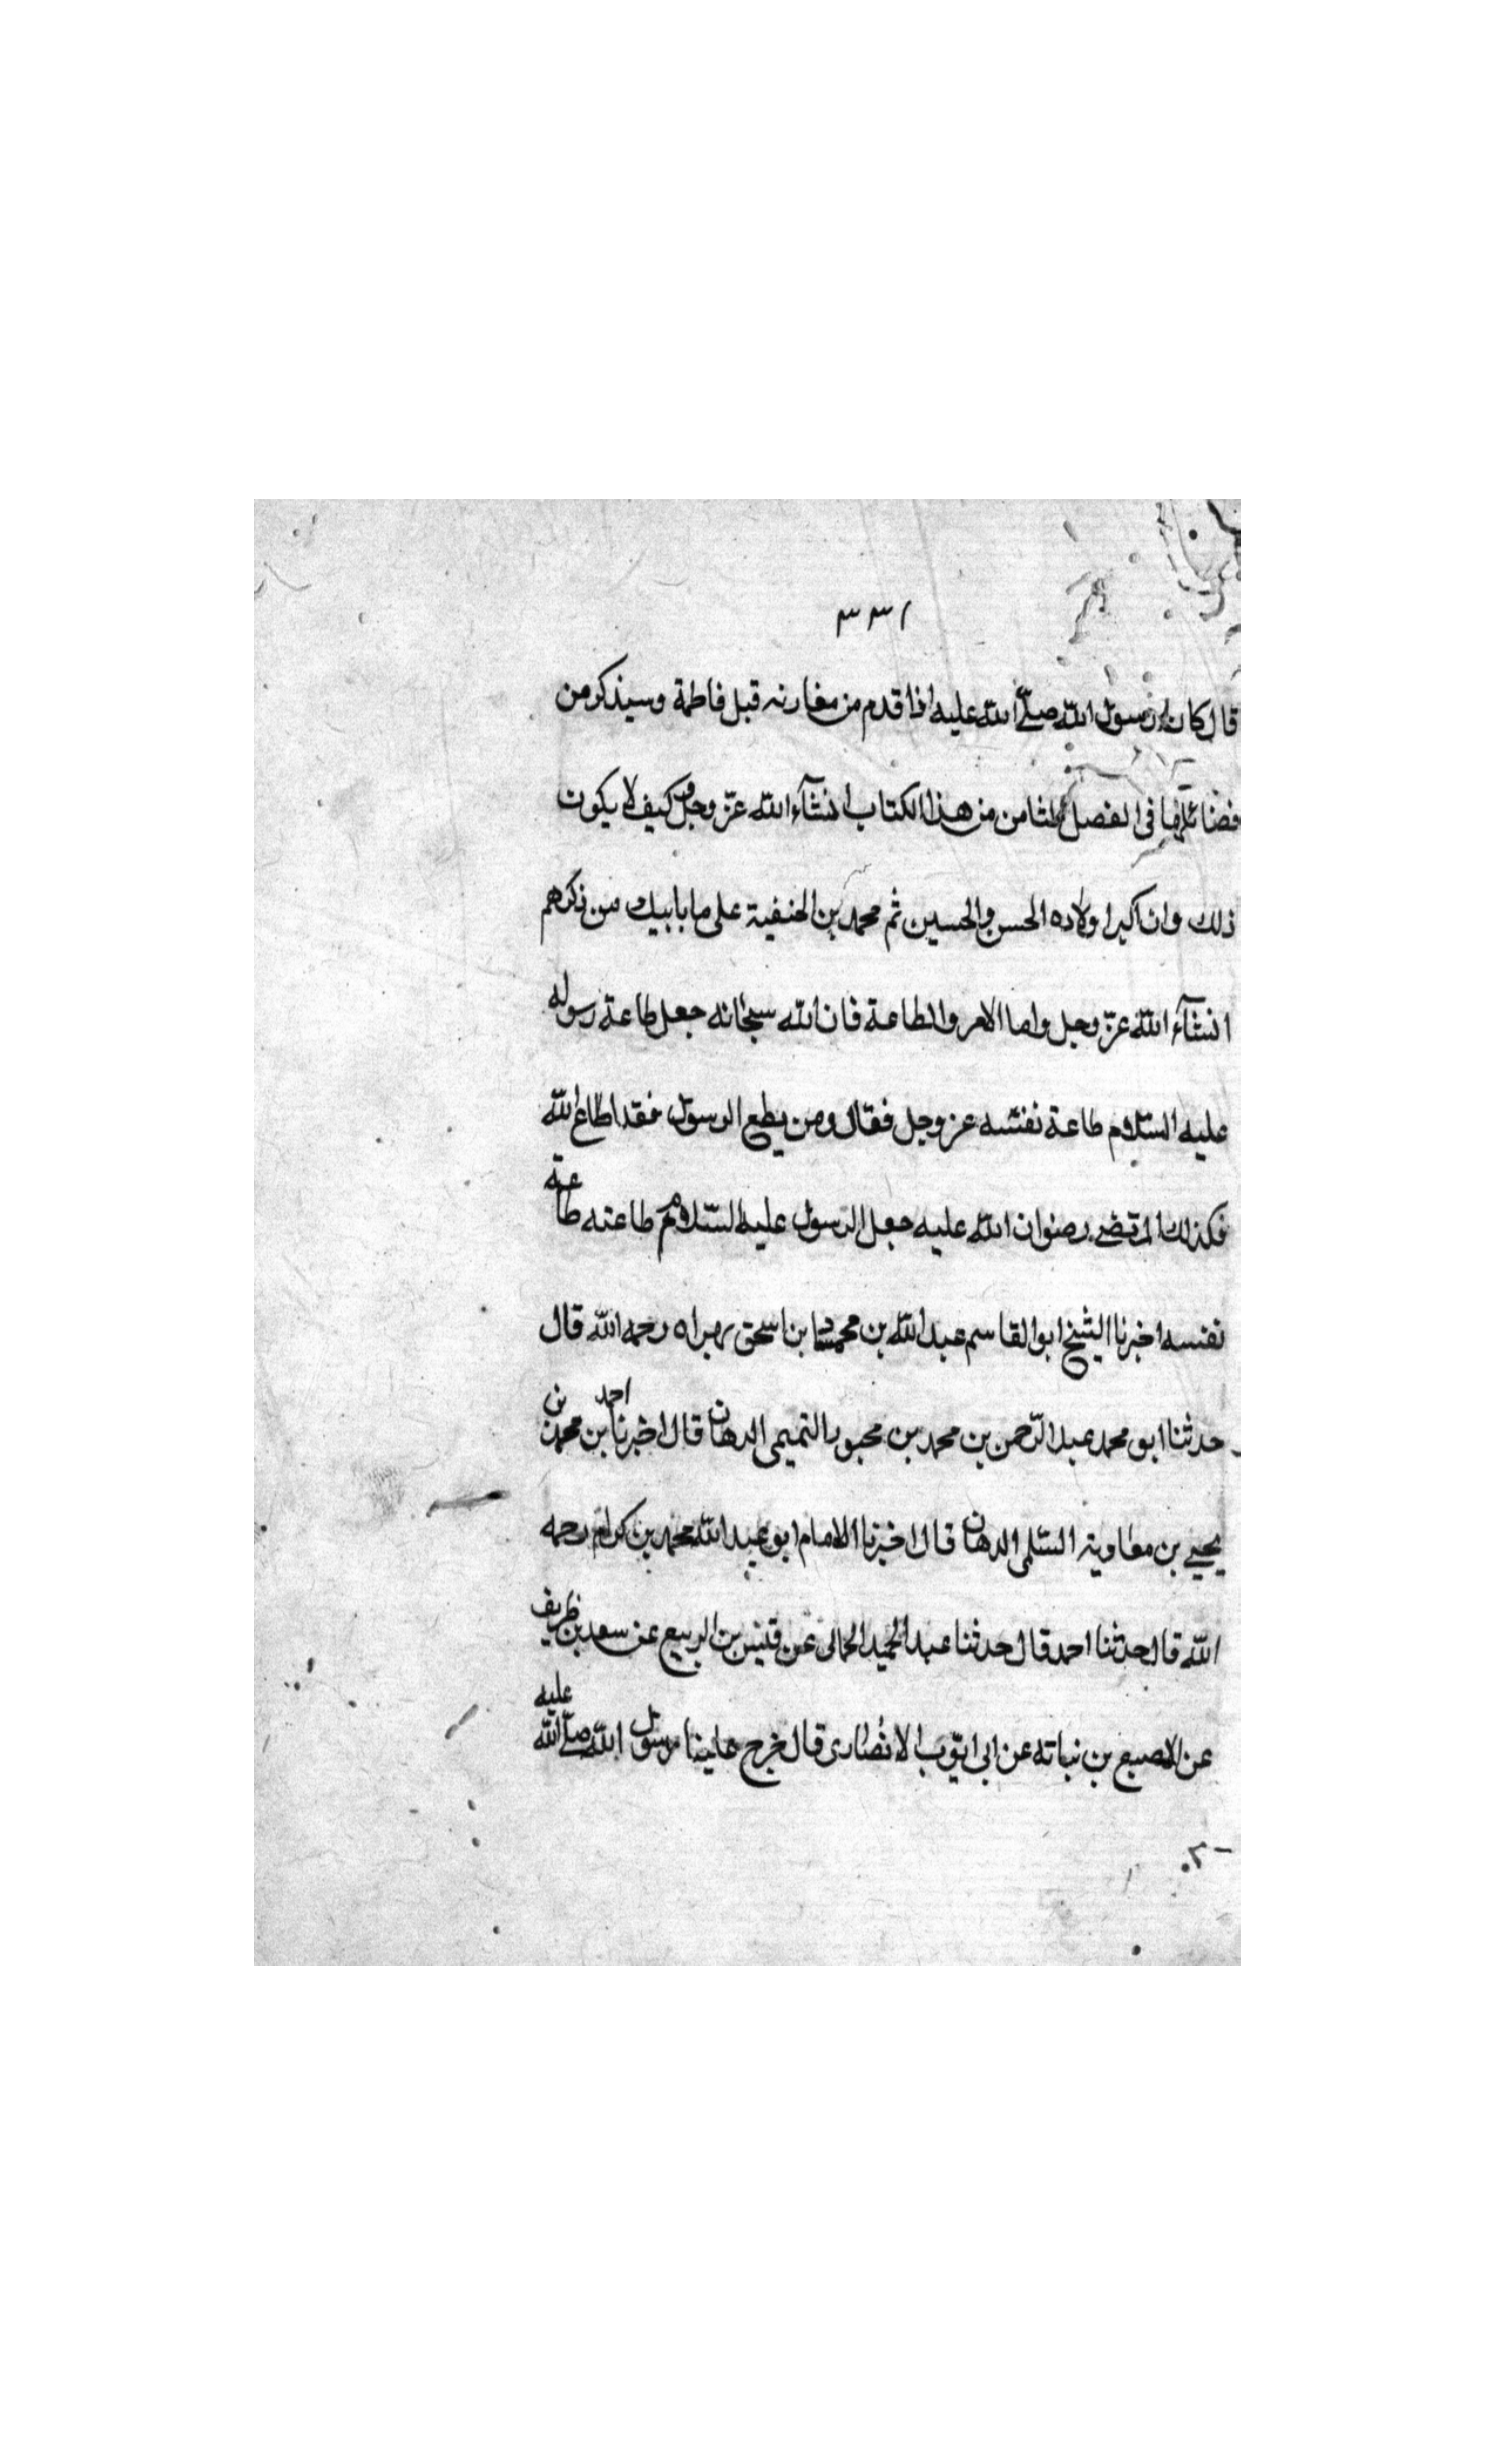 ٣٣١
قال كان رسول الله صلى الله عليه اذا قدم من مغازيه قبل فاطمة وسيذكر من
فضائلها فى الفصل الثامن من هذا الكتاب انشآء الله عزّ وجل وكيف لا يكون
ذلك وان اكبر اولاده الحسن والحسين ثم محمد بن الحنفية على ما ياتيك من ذكرهم
انشآء الله عزّ وجل واما الامر والطاعة فان الله سبحانه جعل طاعة رسوله
عليه السّلام طاعة نفسه عز وجل فقال ومن يطع الرسول فقد اطاع الله
فكذلك المرتضى رضوان الله عليه جعل الرسول عليه السّلام طاعته طاعة
نفسه اخبرنا الشيخ ابو القاسم عبد الله بن محمشاد بن اسحق بهراه رحمه الله قال
حدثنا ابو محمد عبد الرّحمن بن محمد بن محبور التميمى الدهان قال اخبرنا احمد بن محمد بن
يحيى بن معاوية السّلمى الدهان قال اخبرنا الامام ابو عبد الله محمد بن كرام رحمه
الله قال حدثنا احمد قال حدثنا عبد الحميد الحمانى عن قيس بن الربيع عن سعد بن ظريف
عن الاصبع بن نباته عن ابى ايّوب الانصارى قال خرج علينا رسول الله صلى الله عليه